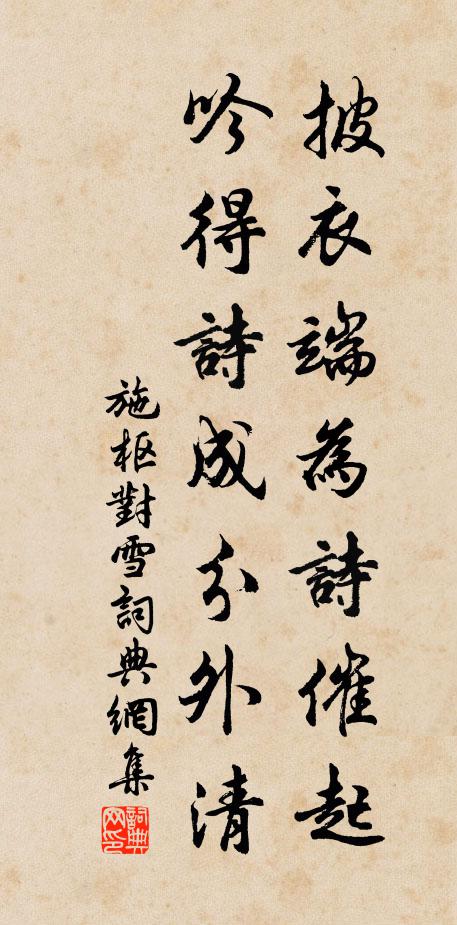 披衣端為詩催起
吟得詩成分外清
施枢對雪詞典網集
詞典网印